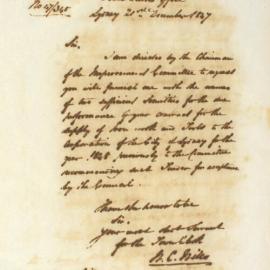 No 47/345
Sydney 20th December 1847
Sir,
I am directed by the Chairman
of the Improvement Committee to request
you will furnish me with the names
of two sufficient Sureties for the due
performance of your contract for the
supply of Iron work and Tools to the
Corporation of the City of Sydney for the
year 1848 previously to the Committee
recommending such Tender for acceptance
by the Council.
I have the honor to be
Sir,
Your most obdt Servant
for the Town Clerk